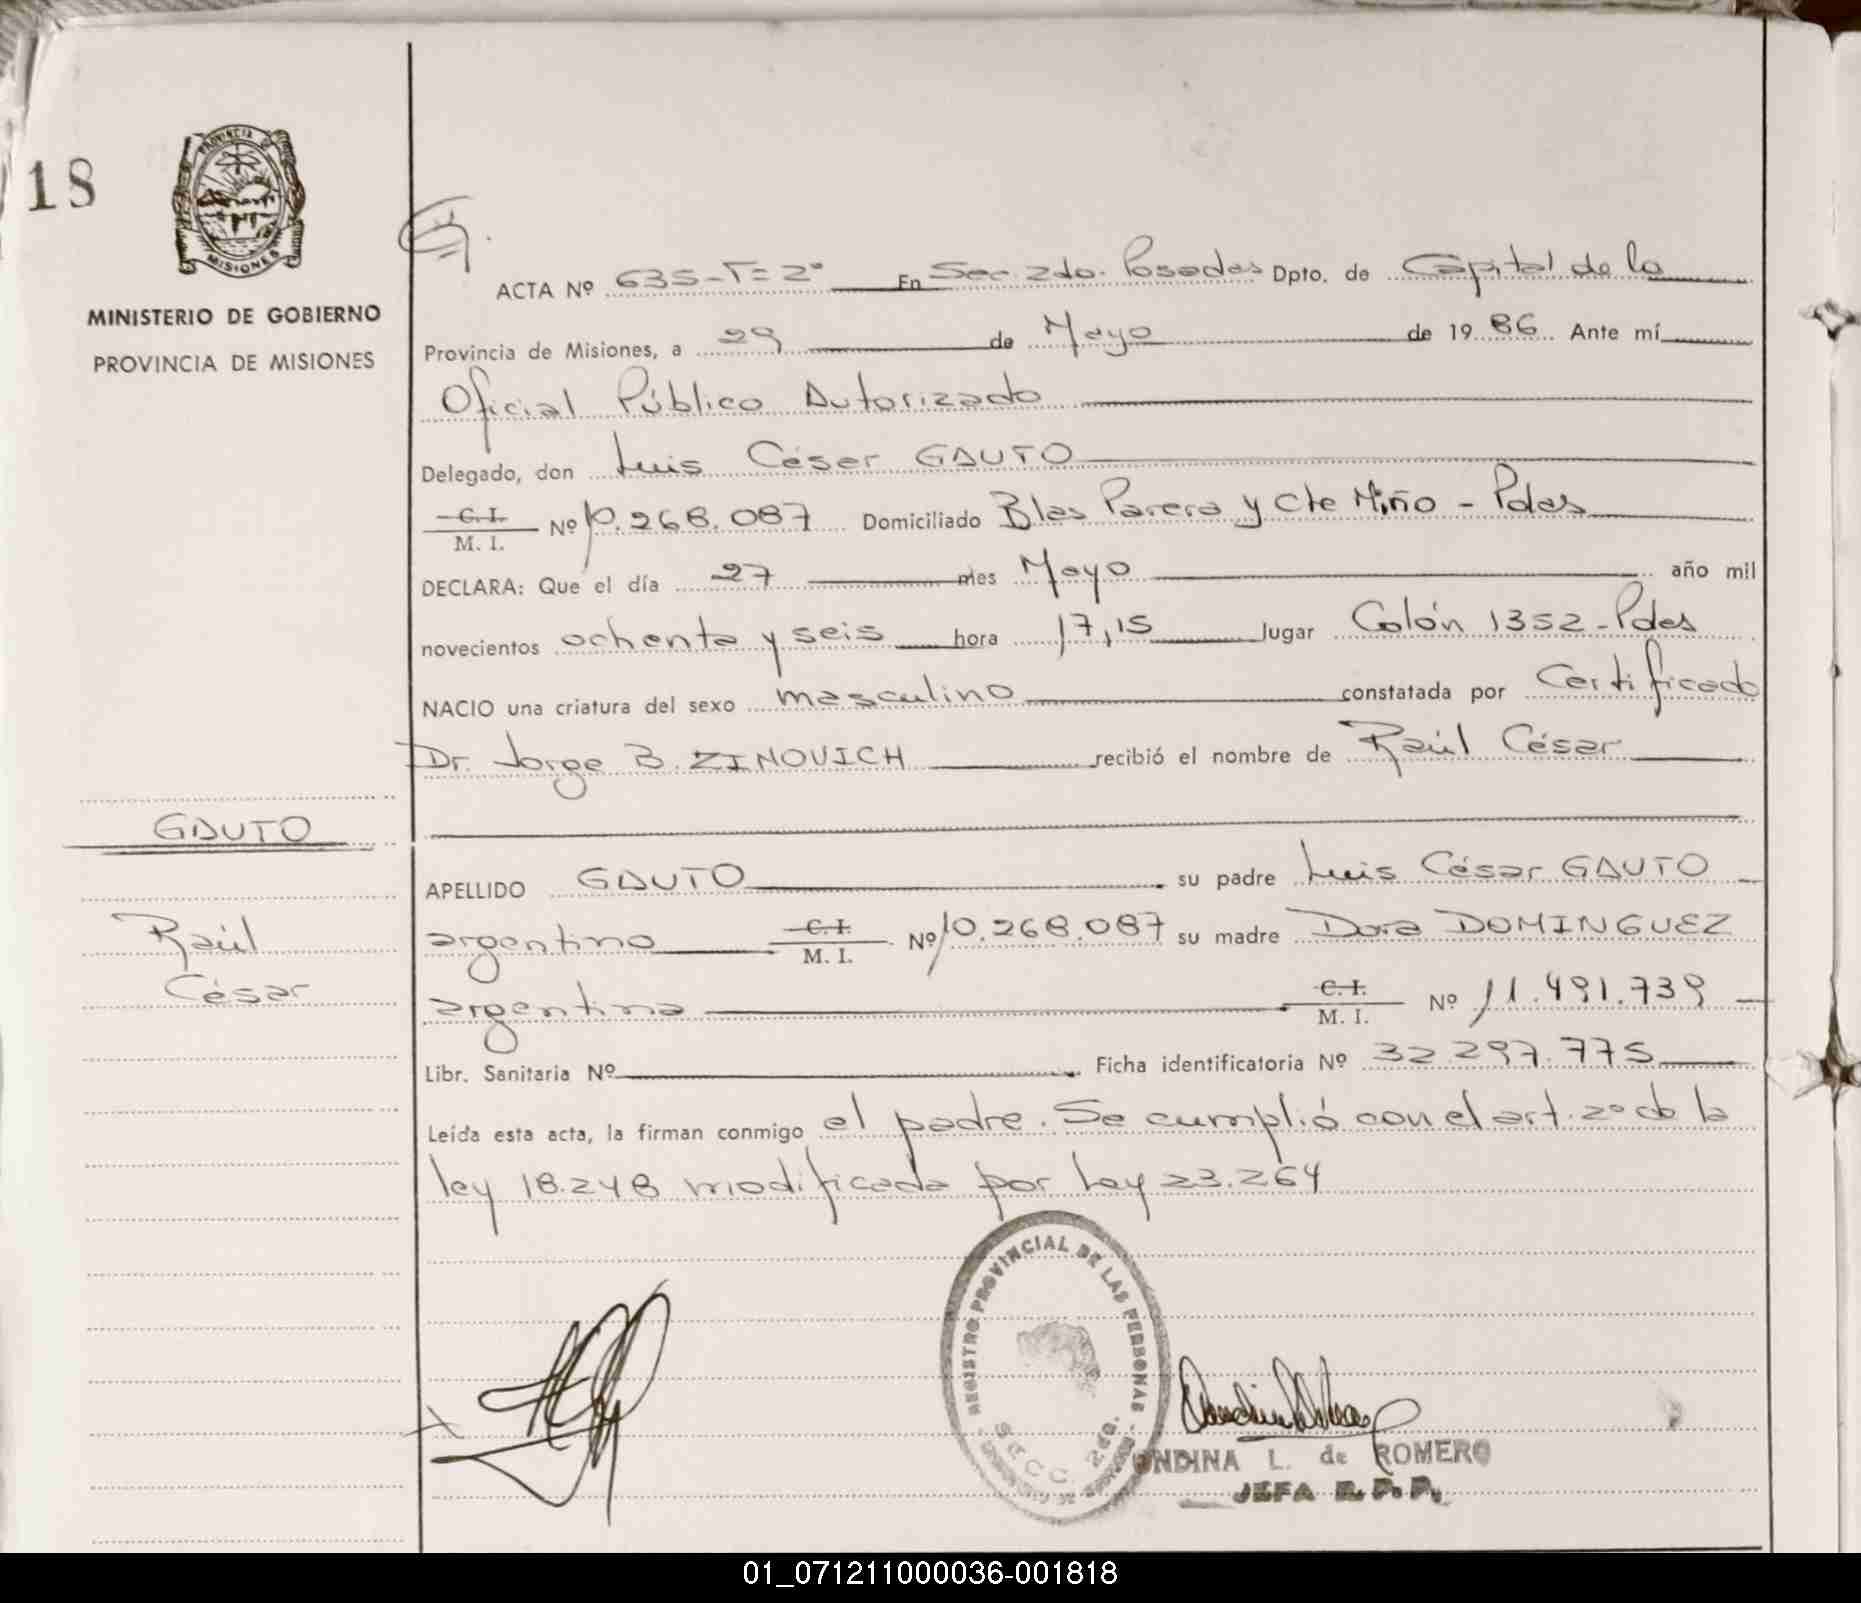 18
PROVINCIA DE
MISIONES
MINISTERIO DE GOBIERNO
PROVINCIA DE MISIONES
ACTA Nº 635-T=2° En Sec. 2do. Posadas Dpto. de Capital de la
Provincia de Misiones, a 29 de Mayo de 1986. Ante mí
Oficial Público Autorizado
Delegado, don Luis César GAUTO
C.I.
M. I. Nº 10.268.087 Domiciliado Blas Parera y Cte Miño - Pdas
DECLARA: Que el día 27 mes Mayo año mil
novecientos ochenta y seis hora 17,15 lugar Colón 1352-Pdas
NACIO una criatura del sexo masculino constatada por Certificado
Dr. Jorge B. ZINOVICH recibió el nombre de Raúl César
GAUTO
Raúl
César
APELLIDO GAUTO su padre Luis César GAUTO
argentino C.I. M. I. Nº 10.268.087 su madre Dora DOMINGUEZ
argentina C.I. M. I. Nº 11.491.739
Libr. Sanitaria Nº Ficha identificatoria Nº 32.297.775
Leída esta acta, la firman conmigo el padre. Se cumplió con el art. 2º de la
ley 18.248 modificada por Ley 23.264
REGISTRO PROVINCIAL DE LAS PERSONAS
SECC. 2da.
ONDINA L. de ROMERO
JEFA R. P. P.
01_071211000036-001818